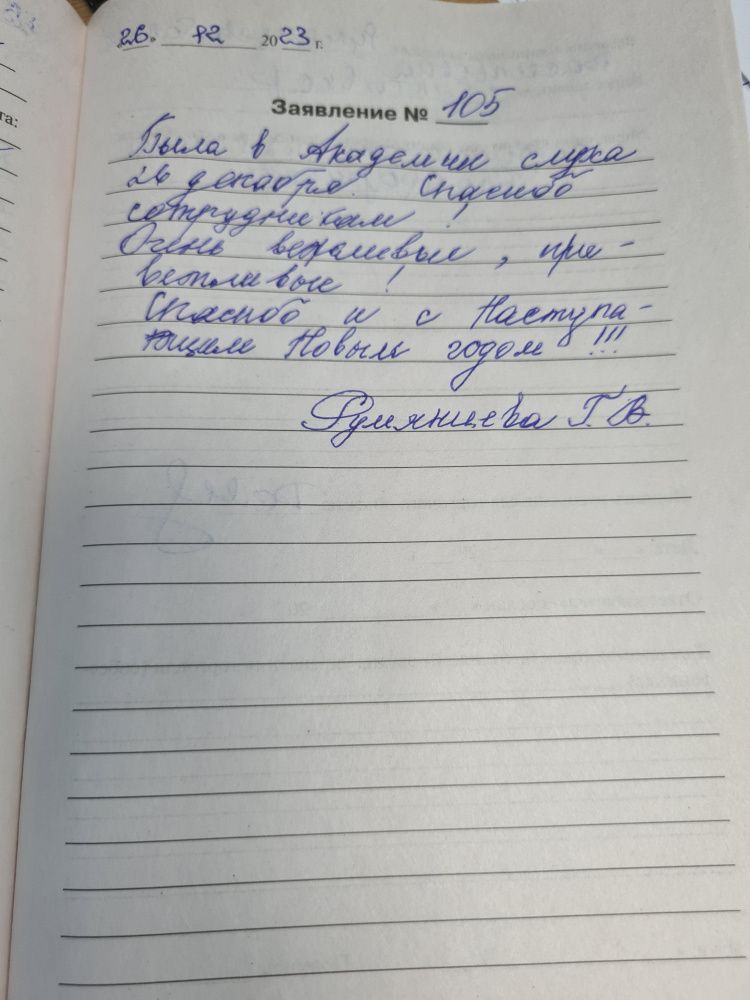 «26» 12 2023 г.
Заявление № 105
Была в Академии слуха
26 декабря. Спасибо
сотрудникам!
Очень вежливые, при-
ветливые!
Спасибо и с Наступа-
ющим Новым годом!!!
Румянцева Г.В.
та: